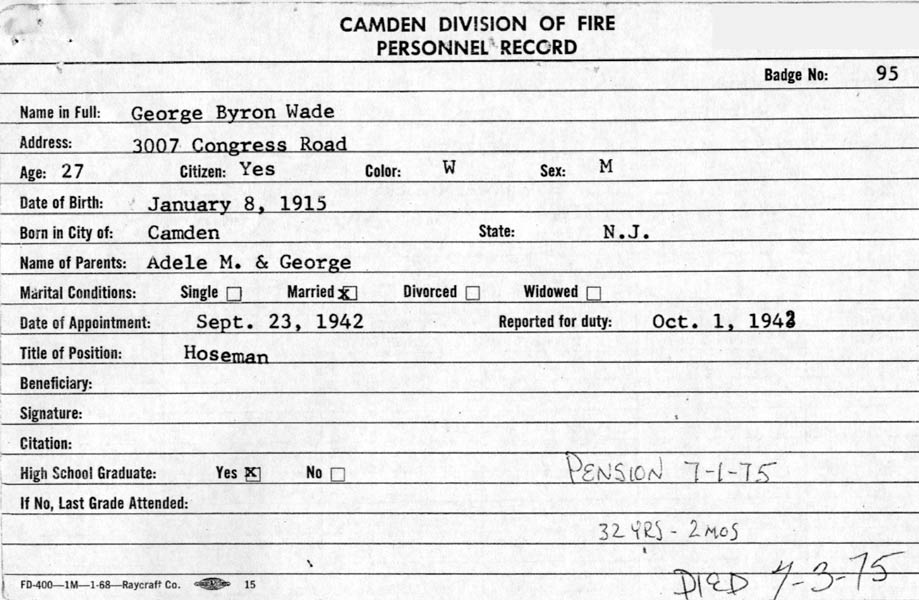 CAMDEN DIVISION OF FIRE
PERSONNEL RECORD
Badge No: 95
Name in Full: George Byron Wade
Address: 3007 Congress Road
Age: 27 Citizen: Yes Color: W Sex: M
Date of Birth: January 8, 1915
Born in City of: Camden State: N.J.
Name of Parents: Adele M. & George
Marital Conditions: Single ☐ Married ☒ Divorced ☐ Widowed ☐
Date of Appointment: Sept. 23, 1942 Reported for duty: Oct. 1, 1942
Title of Position: Hoseman
Beneficiary:
Signature:
Citation:
High School Graduate: Yes ☒ No ☐ PENSION 7-1-75
If No, Last Grade Attended:
32 YRS - 2 MOS
FD-400—1M—1-68—Raycraft Co. 15 DIED 7-3-75